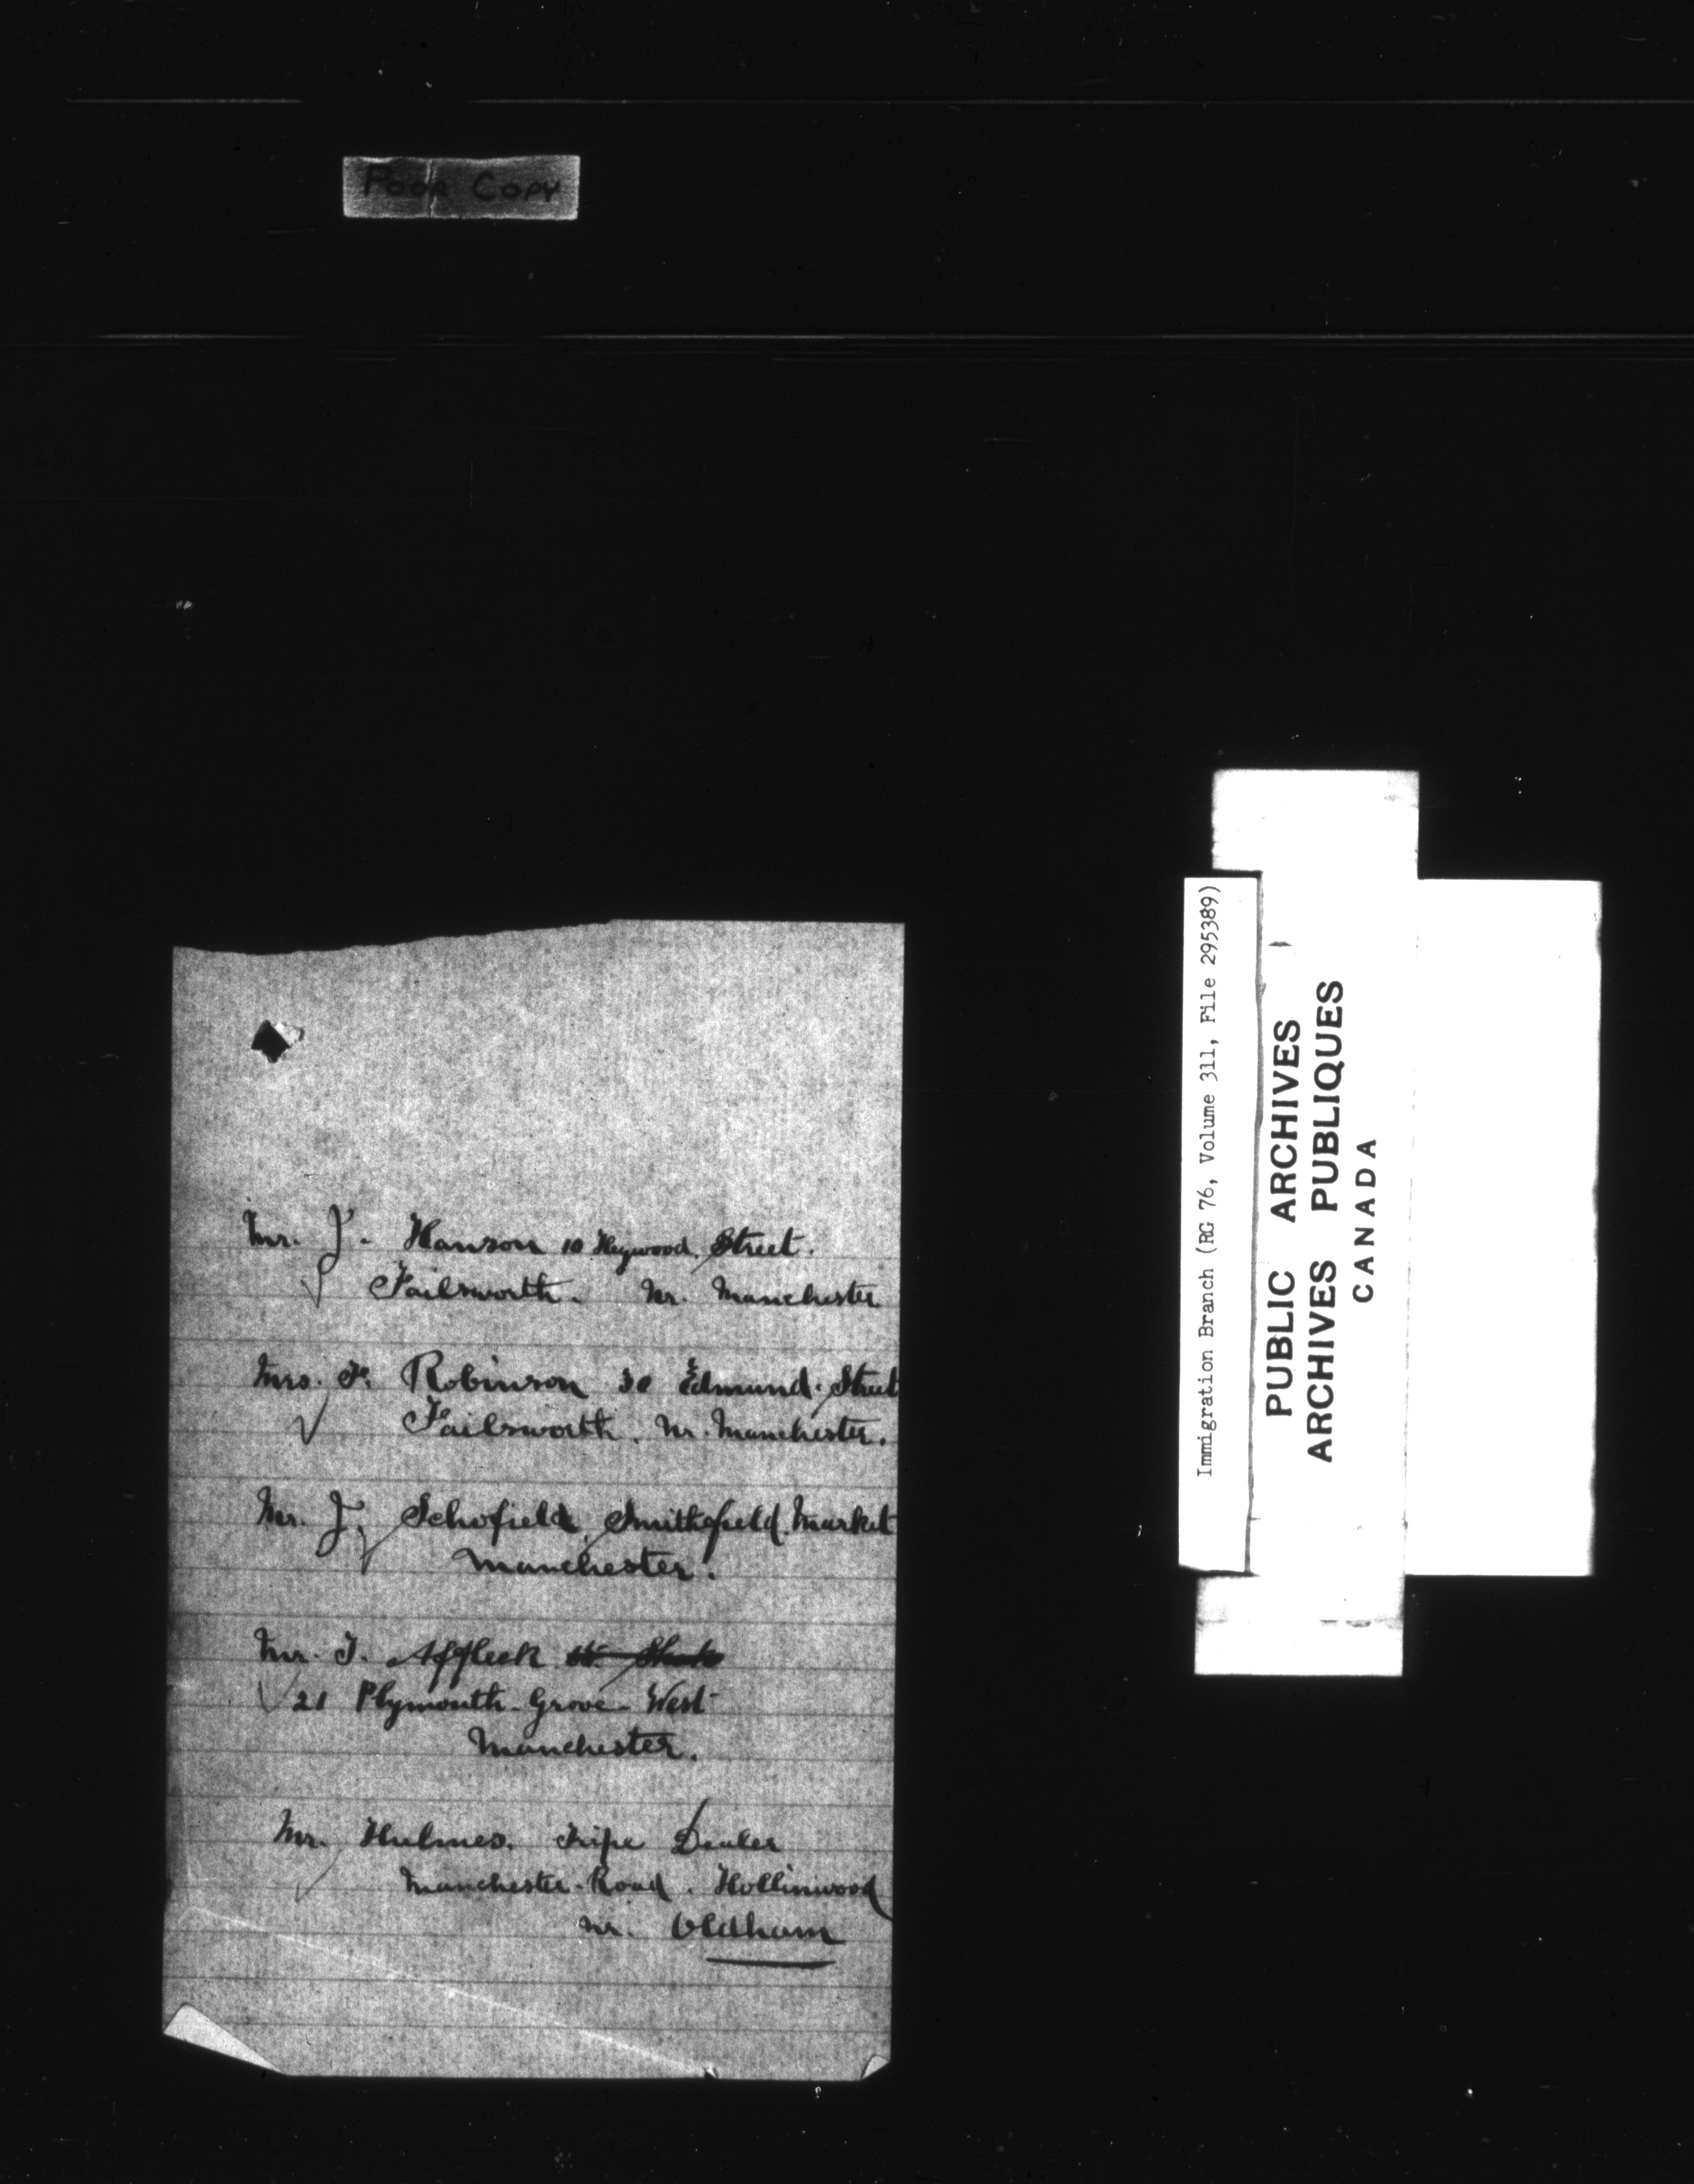 POOR COPY
Mr. J. Hanson 10 Heywood Street.
Failsworth. Nr. Manchester
Mrs. F. Robinson 30 Edmund Street
Failsworth. Nr. Manchester.
Mr. J. Schofield, Smithfield Market
Manchester.
Mr. J. Affleck
21 Plymouth Grove West
Manchester.
Mr. Hulmes. Tripe Dealer
Manchester Road. Hollinwood
nr. Oldham
Immigration Branch (RG 76, Volume 311, File 295389)
PUBLIC ARCHIVES
ARCHIVES PUBLIQUES
CANADA